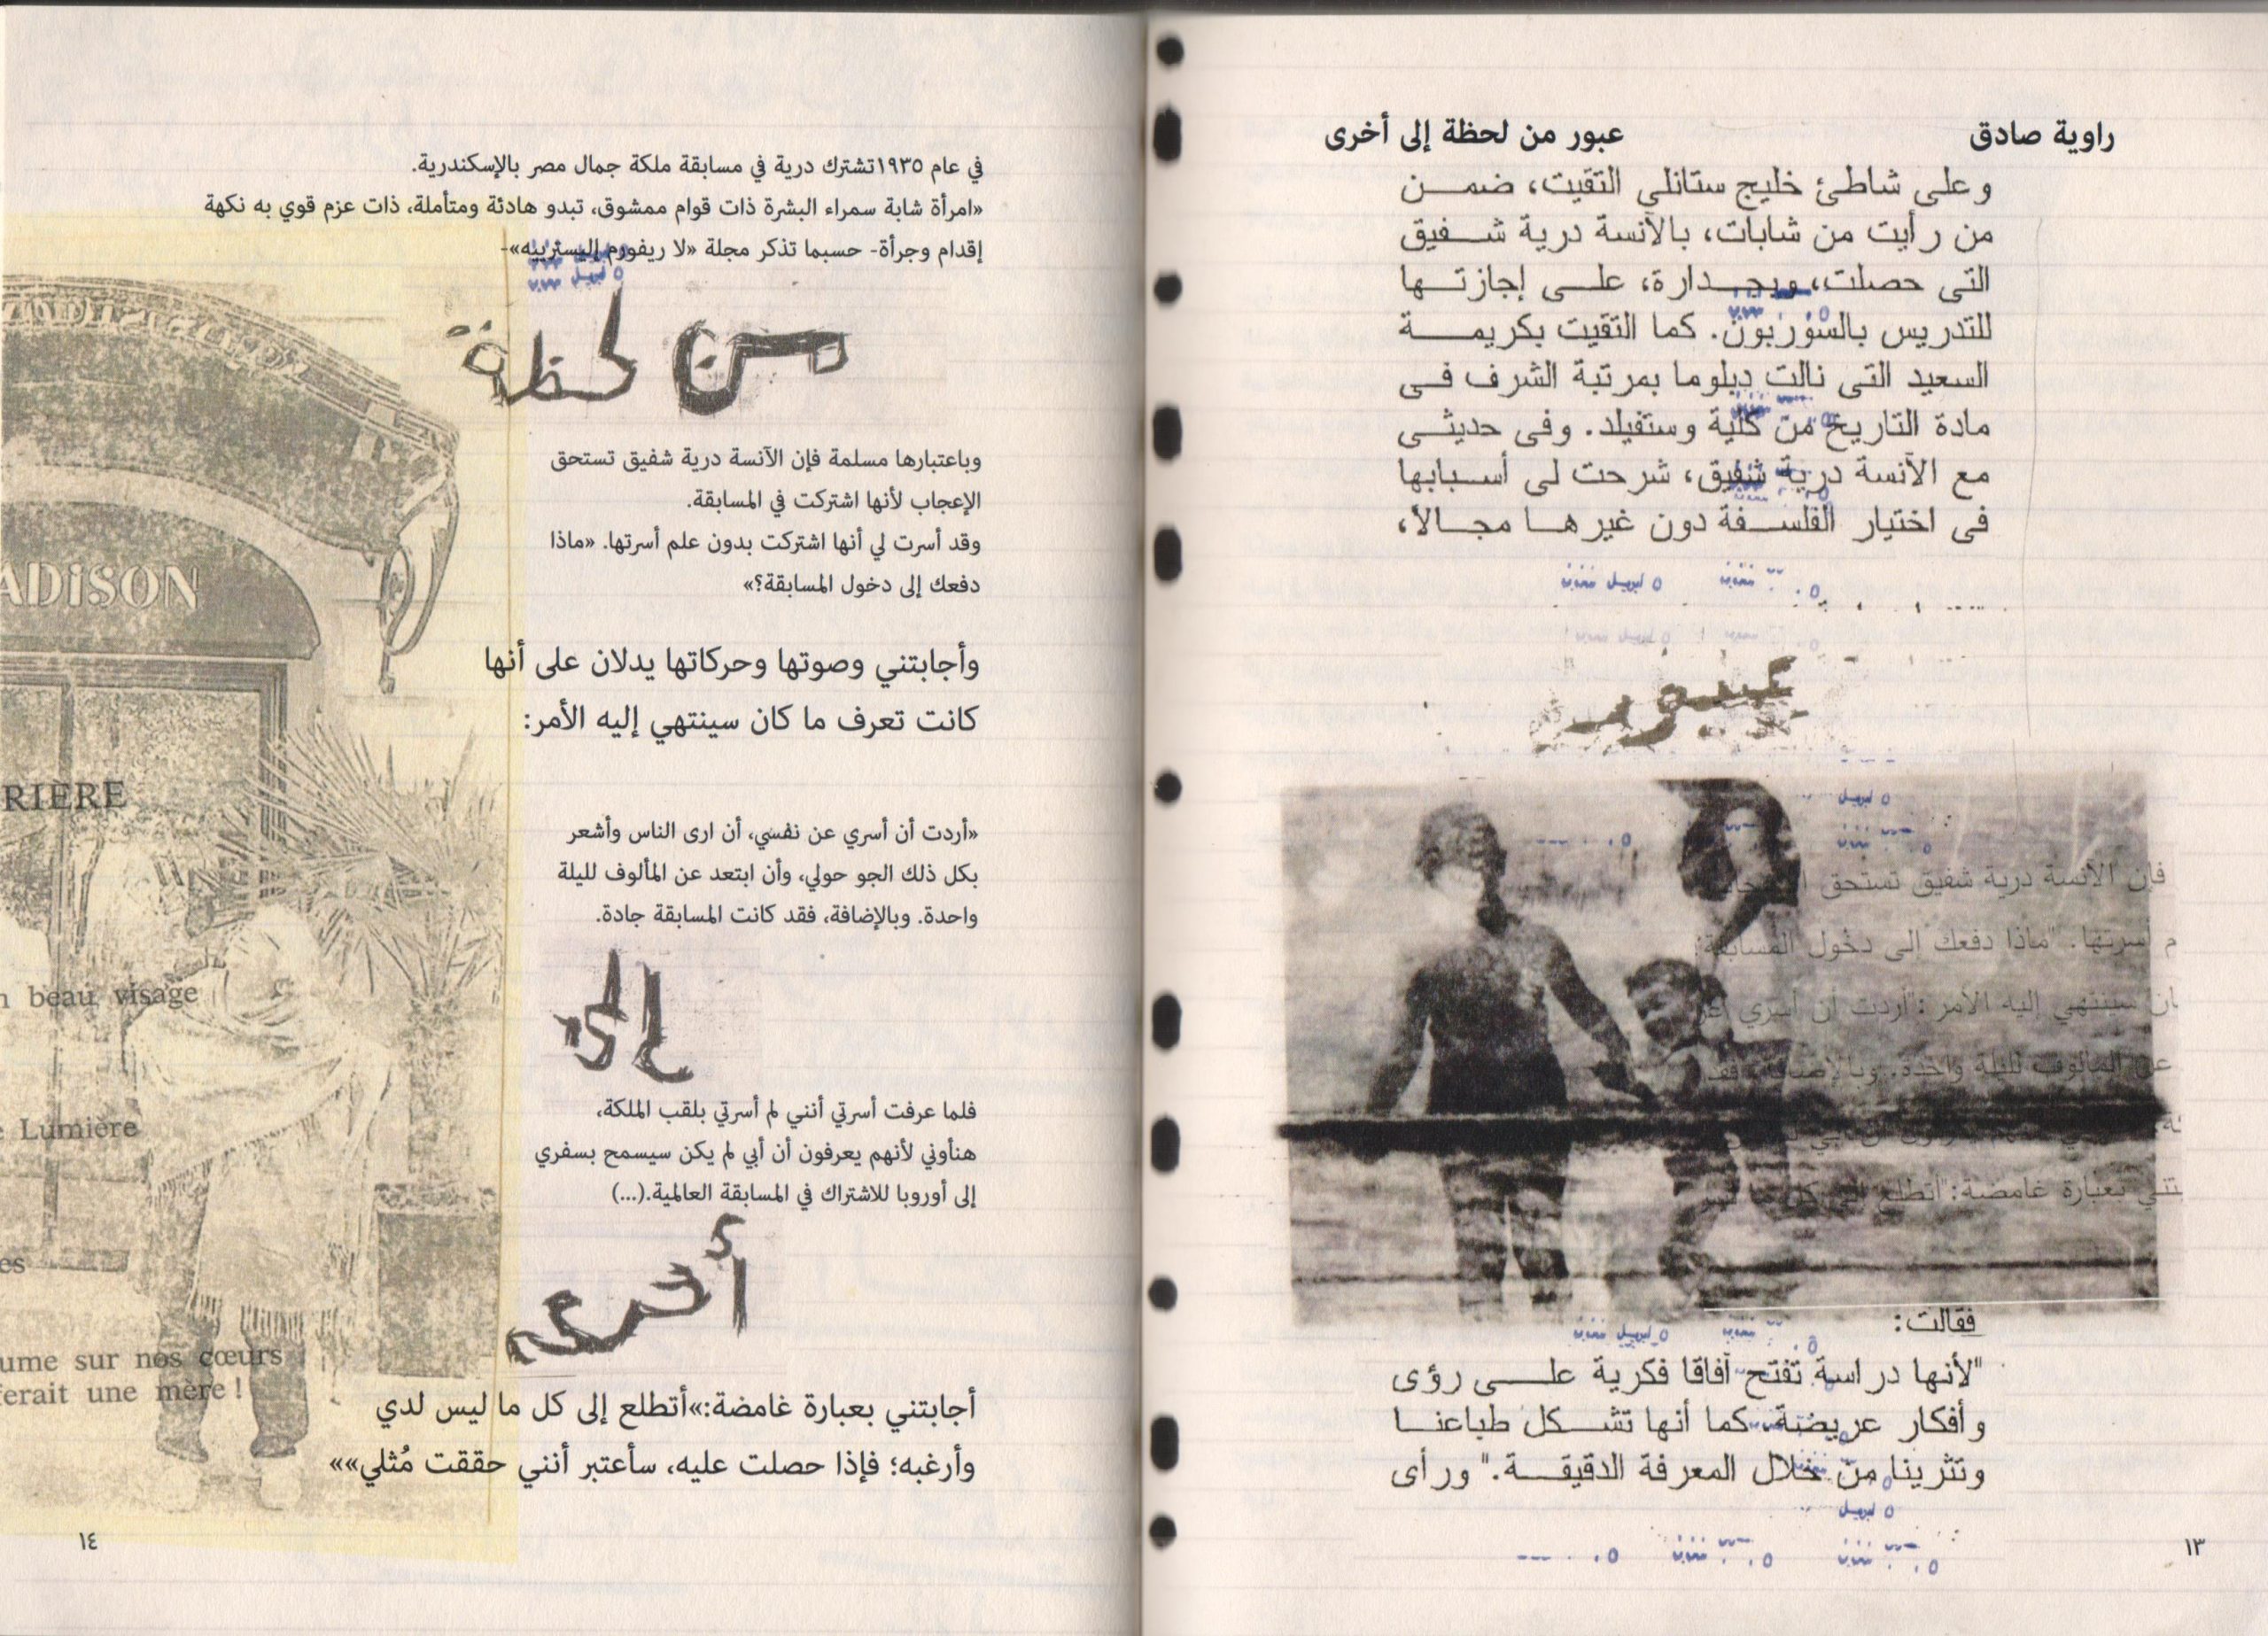 راوية صادق
عبور من لحظة إلى أخرى
وعلى شاطئ خليج ستانلي التقيت، ضمن
من رأيت من شابات، بالآنسة درية شفيق
التى حصلت، وبجدارة، على إجازتها
للتدريس بالسوربون. كما التقيت بكريمة
السعيد التى نالت دبلوما بمرتبة الشرف فى
مادة التاريخ من كلية وستفيلد. وفى حديثى
مع الآنسة درية شفيق، شرحت لى أسبابها
فى اختيار الفلسفة دون غيرها مجالاً،
٥ ابريل
عبور
٥ ابريل
فإن الآنسة درية شفيق تستحق
م أسرتها. "ماذا دفعك إلى دخول المسابقة؟
ان سينتهي إليه الأمر :"أردت أن أسري عن
عن المألوف لليلة واحدة. وبالإضافة، فقد
تني بعبارة غامضة:"أتطلع إلى كل ما ليس
فقالت:
٥ ابريل
"لأنها دراسة تفتح آفاقا فكرية على رؤى
وأفكار عريضة، كما أنها تشكل طباعنا
وتثرينا من خلال المعرفة الدقيقة." ورأى
٥ ابريل
١٣
في عام ١٩٣٥تشترك درية في مسابقة ملكة جمال مصر بالإسكندرية.
«امرأة شابة سمراء البشرة ذات قوام ممشوق، تبدو هادئة ومتأملة، ذات عزم قوي به نكهة
إقدام وجرأة- حسبما تذكر مجلة «لا ريفورم إليستربيه»-
٥ ابريل
من لحظة
وباعتبارها مسلمة فإن الآنسة درية شفيق تستحق
الإعجاب لأنها اشتركت في المسابقة.
وقد أسرت لي أنها اشتركت بدون علم أسرتها. «ماذا
دفعك إلى دخول المسابقة؟»
وأجابتني وصوتها وحركاتها يدلان على أنها
كانت تعرف ما كان سينتهي إليه الأمر:
«أردت أن أسري عن نفسي، أن ارى الناس وأشعر
بكل ذلك الجو حولي، وأن ابتعد عن المألوف لليلة
واحدة. وبالإضافة، فقد كانت المسابقة جادة.
إلى
فلما عرفت أسرتي أنني لم أسرتي بلقب الملكة،
هنأوني لأنهم يعرفون أن أبي لم يكن سيسمح بسفري
إلى أوروبا للاشتراك في المسابقة العالمية.(...)
أخرى
أجابتني بعبارة غامضة:»أتطلع إلى كل ما ليس لدي
وأرغبه؛ فإذا حصلت عليه، سأعتبر أنني حققت مُثلي»»
ADiSON
RIÈRE
n beau visage
e Lumière
es
ume sur nos cœurs
ferait une mère !
١٤